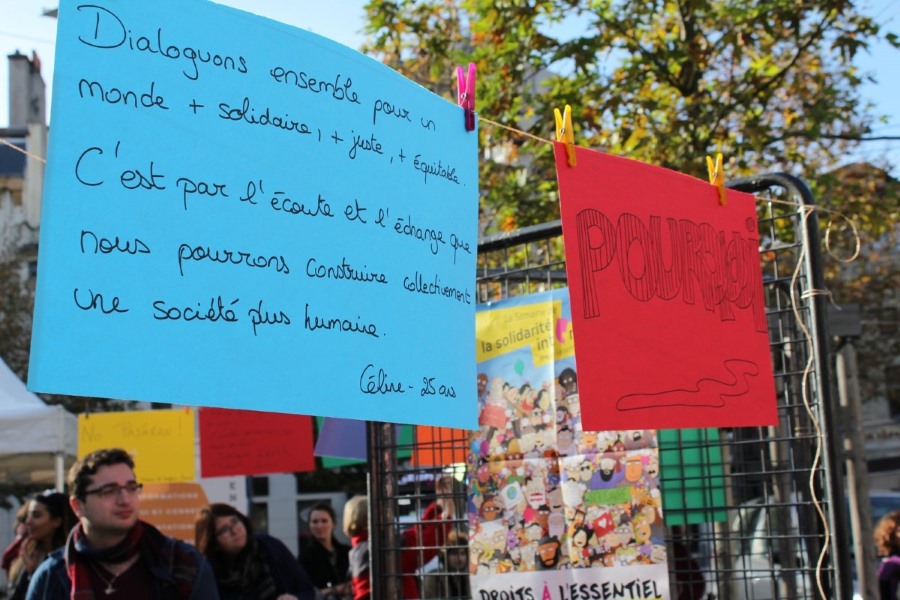 Dialoguons ensemble pour un
monde + solidaire, + juste, + équitable.
C'est par l'écoute et l'échange que
nous pourrons construire collectivement
une société plus humaine.
Céline - 25 ans
POURQUOI
La Semaine
la solidarité
int
DROITS À L'ESSENTIEL
No Pasaran !